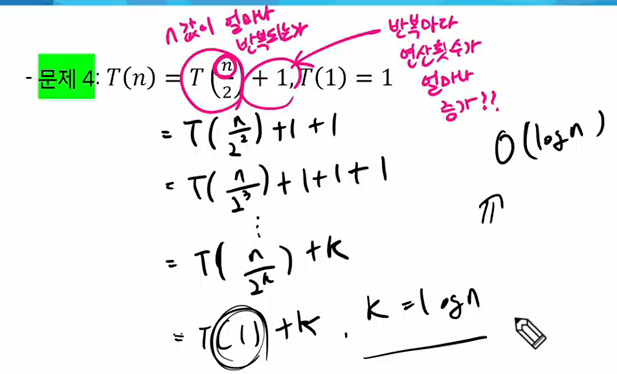 n 값이 얼마나
반복되는가
반복마다
연산횟수가
얼마나
증가??
- 문제 4: T(n) = T(n/2) + 1, T(1) = 1
= T(n/2²) + 1 + 1
= T(n/2³) + 1 + 1 + 1
⋮
= T(n/2ᵏ) + k
= T(1) + k, k = log n
O(log n)